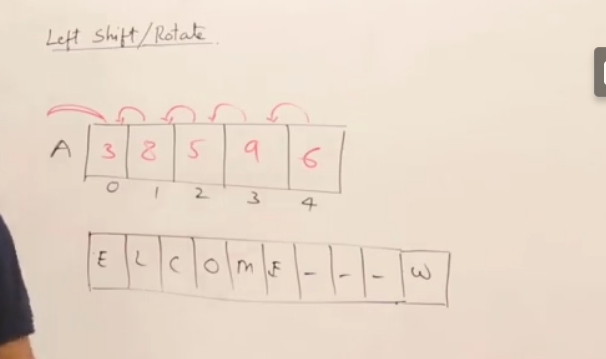 Left Shift/Rotate
A 3 8 5 9 6
0 1 2 3 4
E L C O M E - - - W